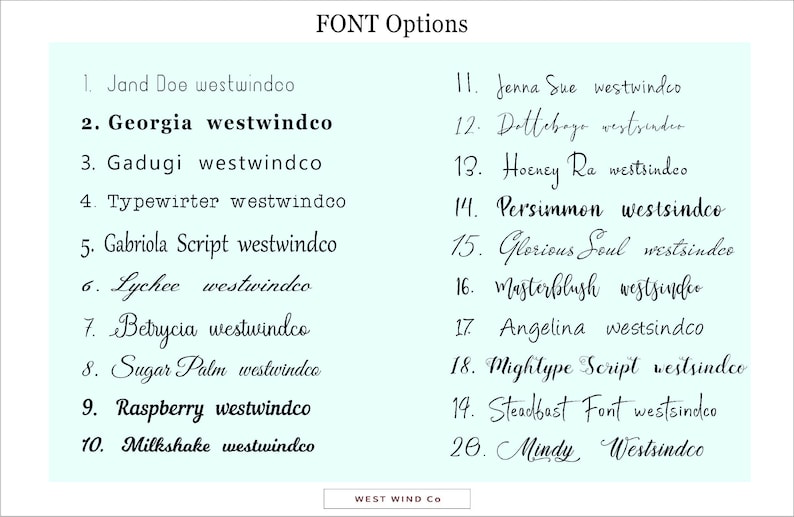 FONT Options
1. Jand Doe westwindco
2. Georgia westwindco
3. Gadugi westwindco
4. Typewirter westwindco
5. Gabriola Script westwindco
6. Lychee westwindco
7. Betrycia westwindco
8. Sugar Palm westwindco
9. Raspberry westwindco
10. Milkshake westwindco
11. Jenna Sue westwindco
12. Dottebayo westsindco
13. Hoeney Ra westsindco
14. Persimmon westsindco
15. Glorious Soul westsindco
16. Masterblush westsindco
17. Angelina westsindco
18. Mightype Script westsindco
19. Steadbast Font westsindco
20. Mindy Westsindco
WEST WIND Co